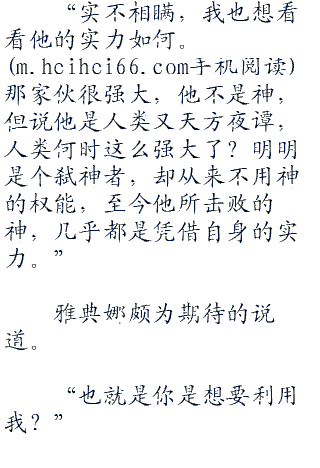 “实不相瞒，我也想看
看他的实力如何。
(m.hcihci66.com手机阅读)
那家伙很强大，他不是神，
但说他是人类又天方夜谭，
人类何时这么强大了？明明
是个弑神者，却从来不用神
的权能，至今他所击败的
神，几乎都是凭借自身的实
力。”
雅典娜颇为期待的说
道。
“也就是你是想要利用
我？”